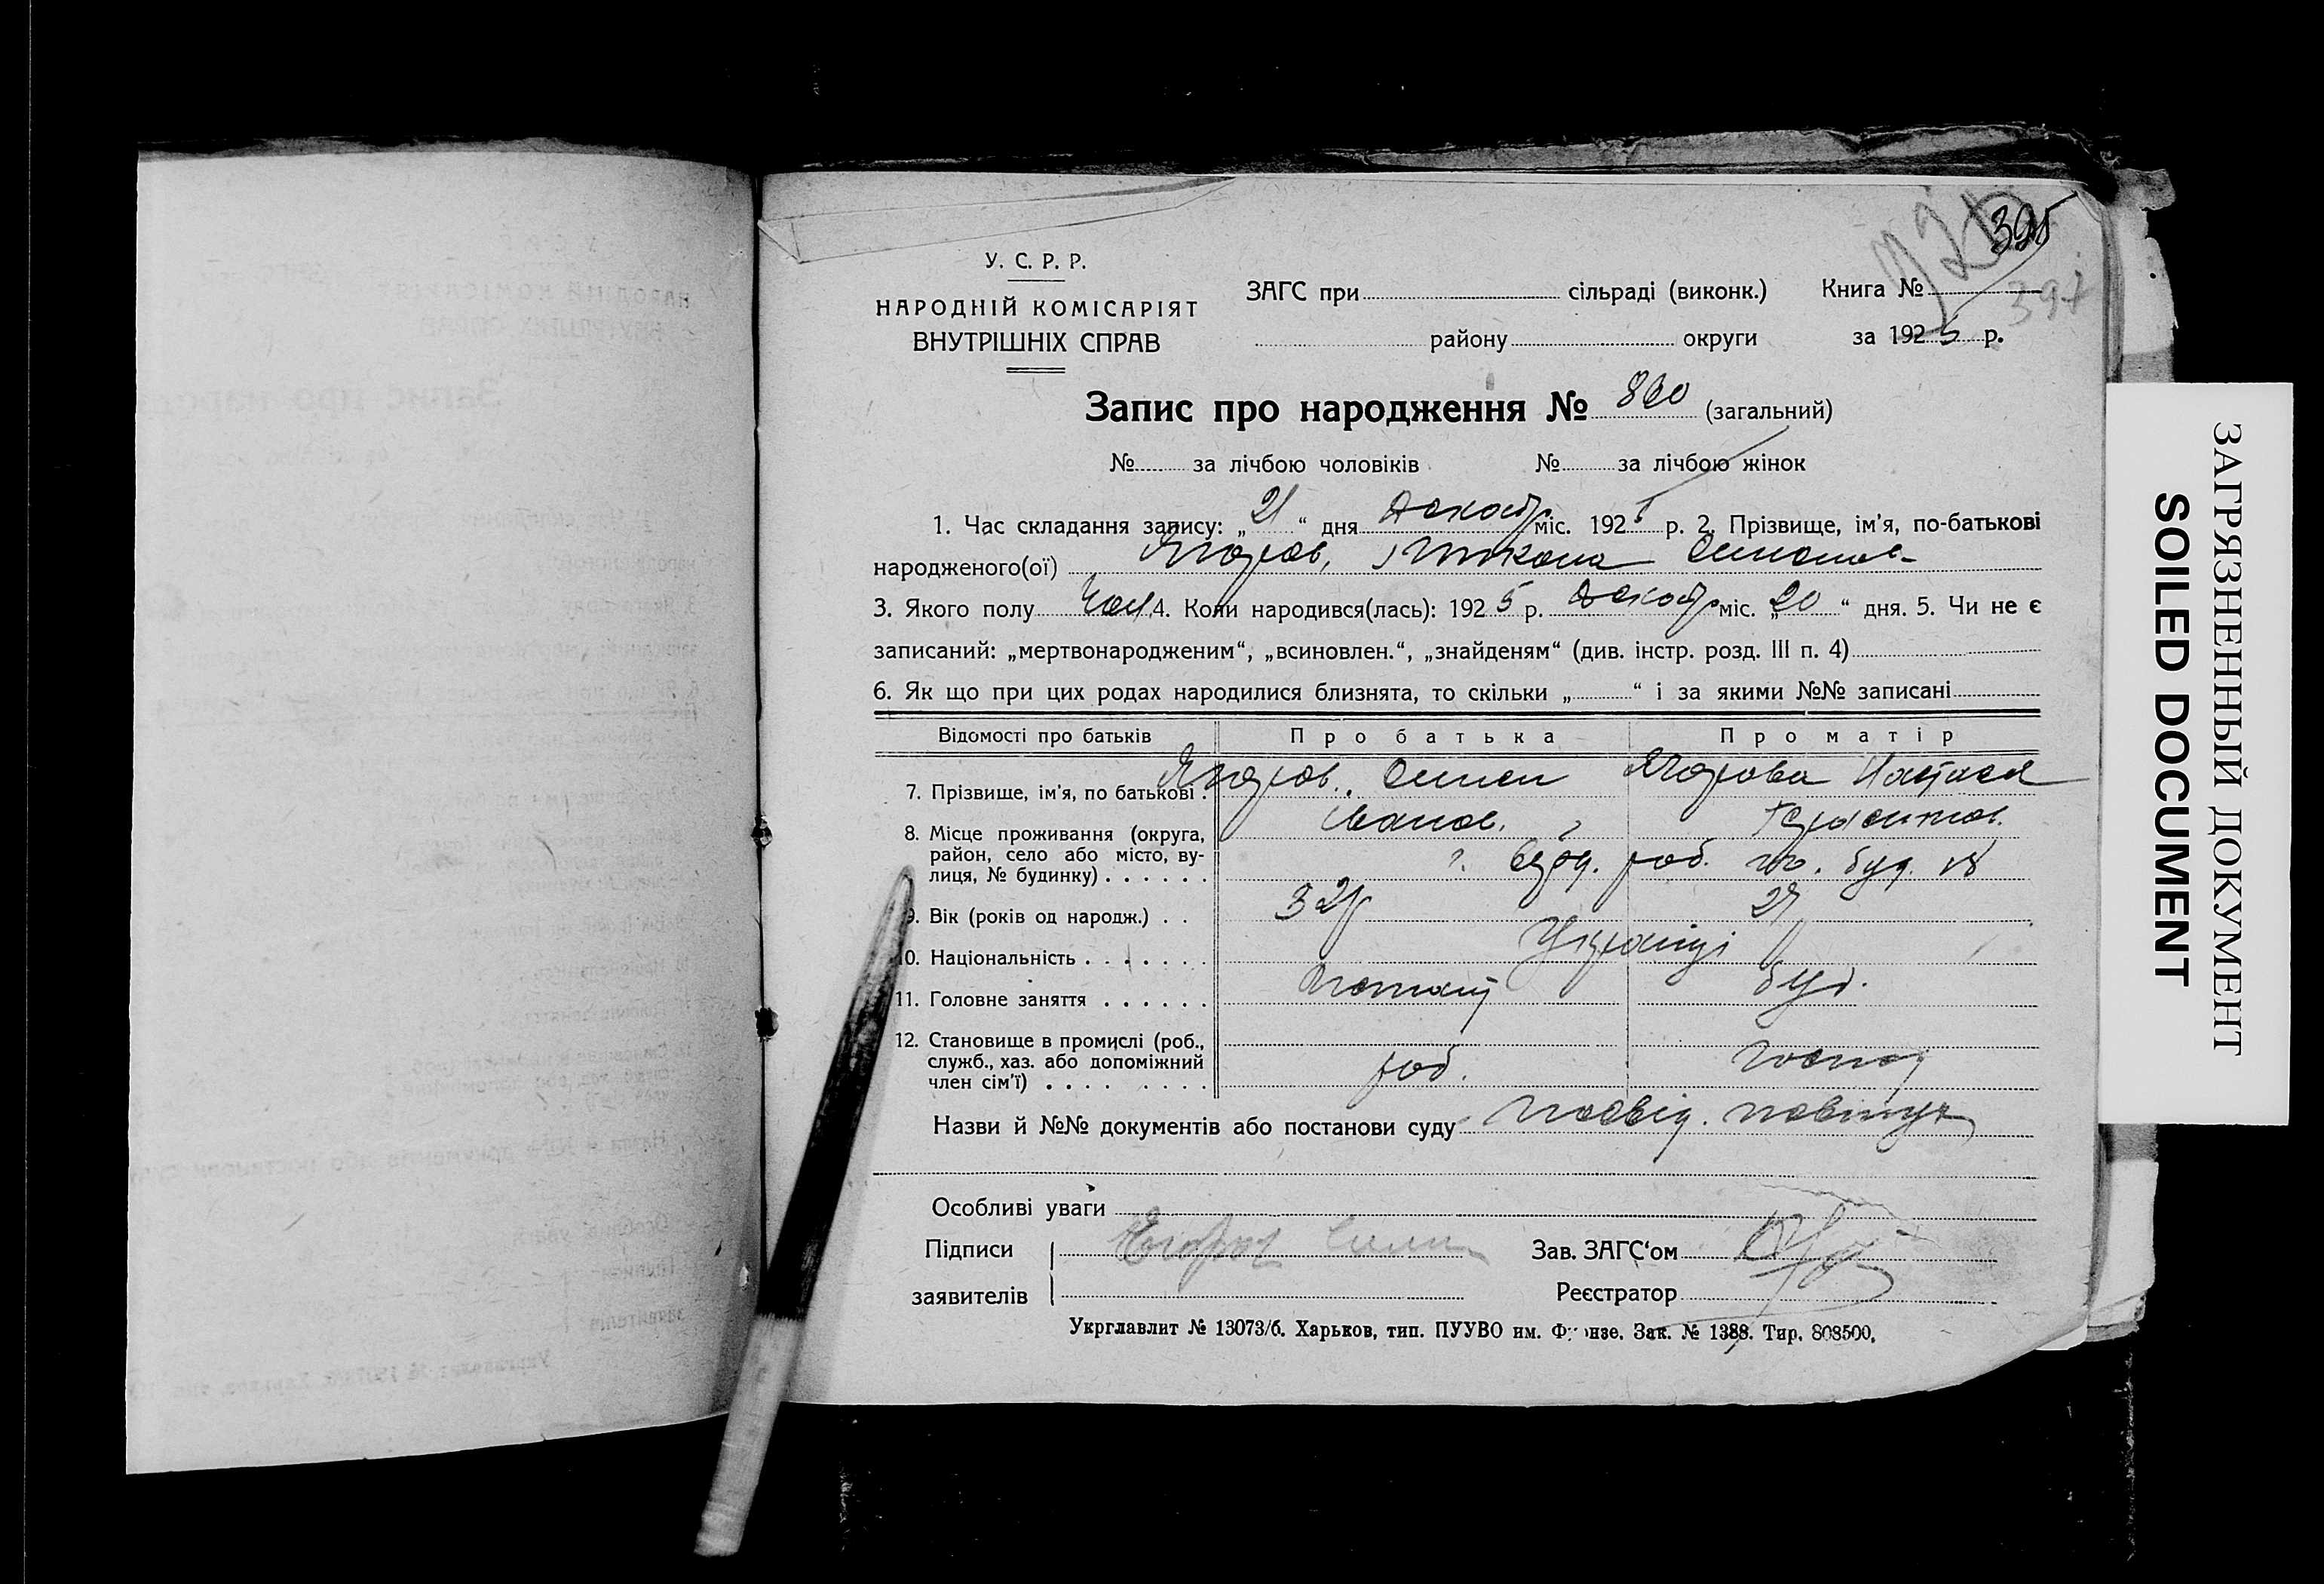 395
397
У. С. Р. Р.
НАРОДНІЙ КОМІСАРІЯТ
ВНУТРІШНІХ СПРАВ
ЗАГС при сільраді (виконк.) Книга №
району округи за 1925 р.
Запис про народження № 860 (загальний)
№ за лічбою чоловіків № за лічбою жінок
1. Час складання запису: „21“ дня декабр міс. 1925 р. 2. Прізвище, ім'я, по-батькові
народженого(ої) Ягоров,
3. Якого полу Чол. 4. Коли народився(лась): 1925 р. декабр міс. „20“ дня. 5. Чи не є
записаний: „мертвонародженим“, „всиновлен.“, „знайденям“ (див. інстр. розд. III п. 4)
6. Як що при цих родах народилися близнята, то скільки „ “ і за якими №№ записані
Відомості про батьків Про батька Про матір
7. Прізвище, ім'я, по батькові . Ягоров. Ягорова Настася
Иванов.
8. Місце проживання (округа,
район, село або місто, ву-
лиця, № будинку) . . . . . . роб. буд. 18
9. Вік (років од народж.) . . 32р 27
10. Національність . . . . . . . Українці
11. Головне заняття . . . . . .
12. Становище в промислі (роб.,
служб., хаз. або допоміжний
член сім'ї) . . . . . . . . роб. госпо
Назви й №№ документів або постанови суду посвід. повитух
Особливі уваги
Підписи Зав. ЗАГС'ом
заявителів Реєстратор
Укрглавлит № 13073/б. Харьков, тип. ПУУВО им. Фрунзе. Зак. № 1388. Тир. 808500.
ЗАГРЯЗНЕННЫЙ ДОКУМЕНТ
SOILED DOCUMENT